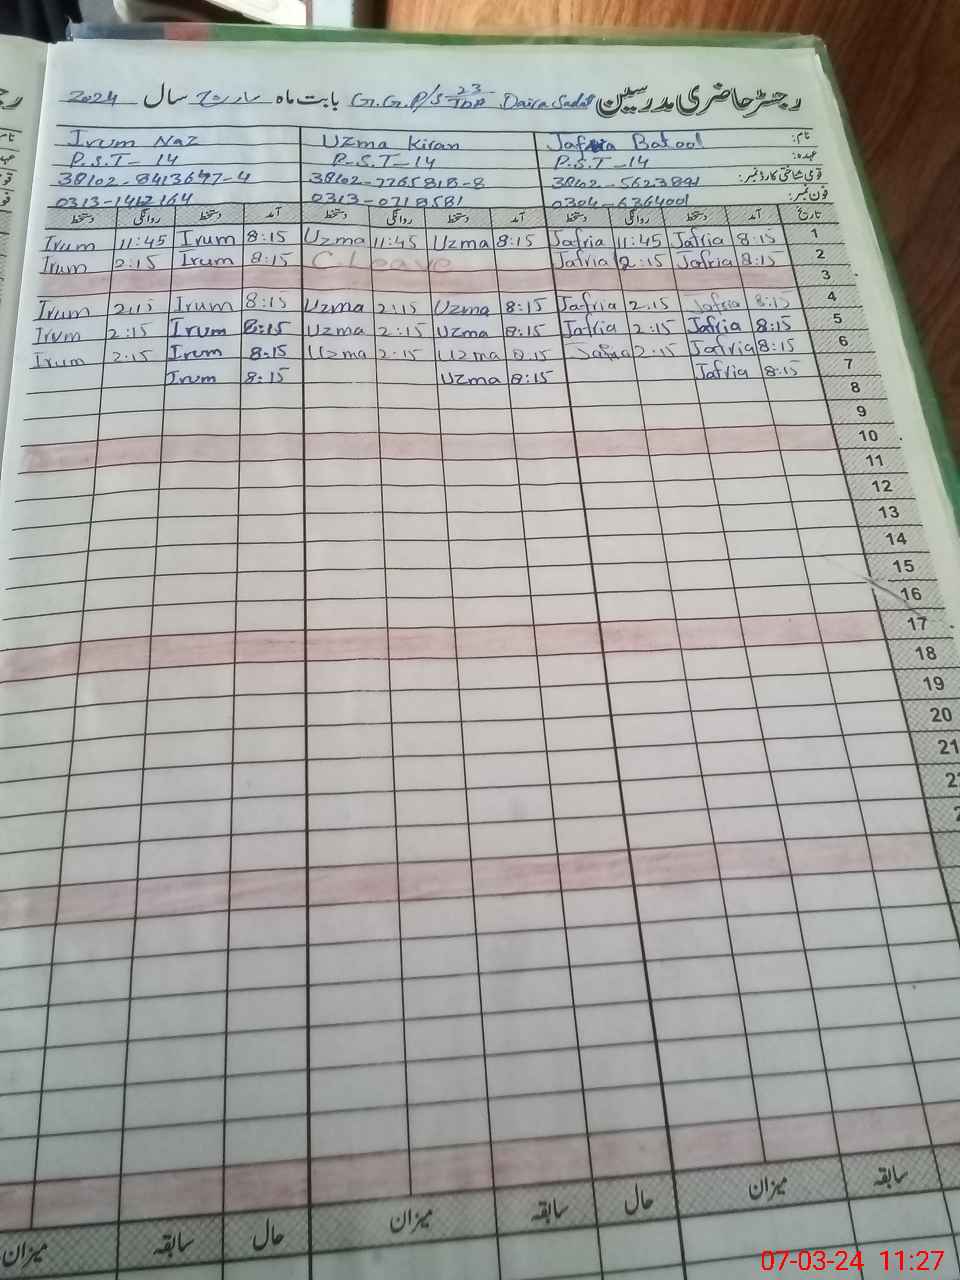 رجسٹر حاضری مدرسین G.G.P/S 23/TDA Daira Sadat بابت ماہ مارچ سال 2024
نام: Jafria Batool Uzma Kiran Irum Naz
عہدہ: P.S.T-14 P.S.T-14 P.S.T-14
قومی شناختی کارڈ نمبر: 38102-5623891 38102-7765818-8 38102-8413647-4
فون نمبر: 0304-6364001 0313-0718581 0313-1412164
تاریخ آمد دستخط روانگی دستخط آمد دستخط روانگی دستخط آمد دستخط روانگی دستخط
1 8:15 Jafria 11:45 Jafria 8:15 Uzma 11:45 Uzma 8:15 Irum 11:45 Irum
2 8:15 Jafria 2:15 Jafria C.Leave 8:15 Irum 2:15 Irum
3
4 8:15 Jafria 2:15 Jafria 8:15 Uzma 2:15 Uzma 8:15 Irum 2:15 Irum
5 8:15 Jafria 2:15 Jafria 8:15 Uzma 2:15 Uzma 8:15 Irum 2:15 Irum
6 8:15 Jafria 2:15 Jafria 8:15 Uzma 2:15 Uzma 8:15 Irum 2:15 Irum
7 8:15 Jafria 8:15 Uzma 8:15 Irum
8
9
10
11
12
13
14
15
16
17
18
19
20
21
سابقہ میزان حال سابقہ میزان حال سابقہ میزان
07-03-24 11:27